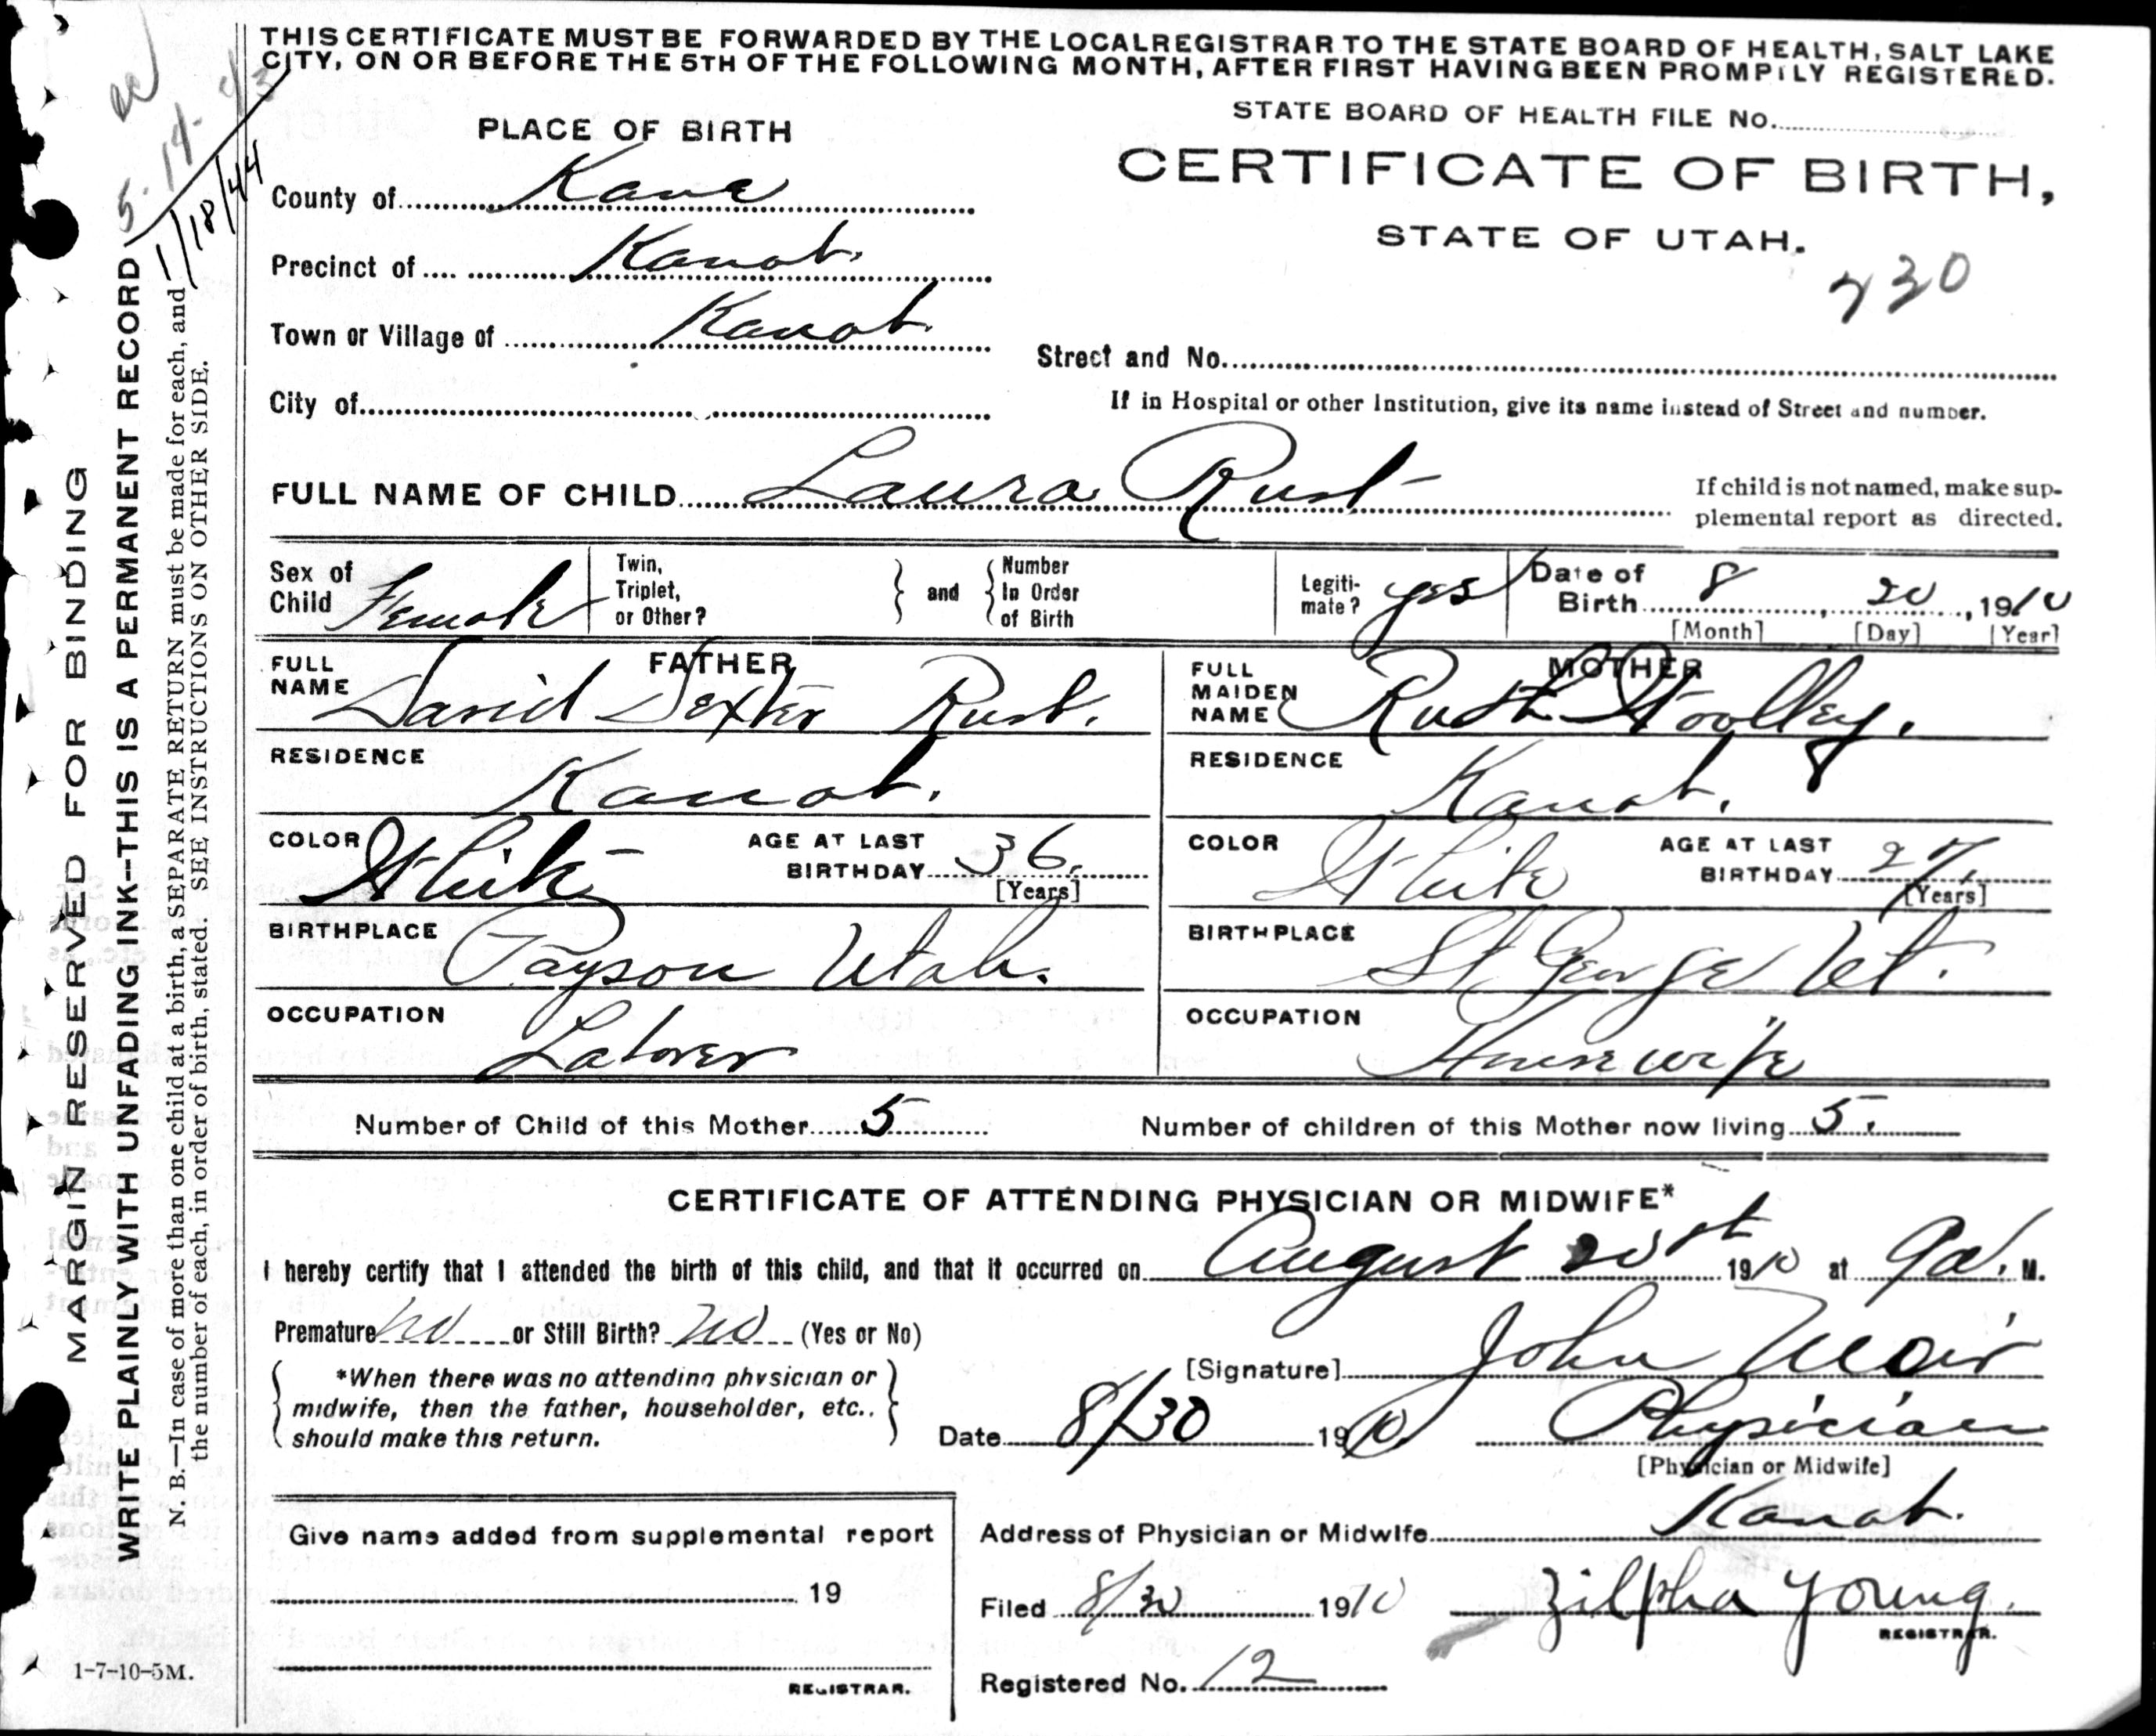 THIS CERTIFICATE MUST BE FORWARDED BY THE LOCAL REGISTRAR TO THE STATE BOARD OF HEALTH, SALT LAKE
CITY, ON OR BEFORE THE 5TH OF THE FOLLOWING MONTH, AFTER FIRST HAVING BEEN PROMPTLY REGISTERED.
STATE BOARD OF HEALTH FILE No.
PLACE OF BIRTH
CERTIFICATE OF BIRTH,
STATE OF UTAH.
230
County of Kane
Precinct of Kanab.
Town or Village of Kanab.
Street and No.
City of
If in Hospital or other Institution, give its name instead of Street and number.
FULL NAME OF CHILD Laura Rust
If child is not named, make sup-
plemental report as directed.
Sex of Child Female
Twin, Triplet, or Other?
and
Number In Order of Birth
Legiti-mate? yes
Date of Birth 8, 20, 1910
[Month] [Day] [Year]
FATHER
FULL NAME David Dexter Rust.
MOTHER
FULL MAIDEN NAME Ruth Woolley.
RESIDENCE Kanab.
RESIDENCE Kanab.
COLOR White AGE AT LAST BIRTHDAY 36. [Years]
COLOR White AGE AT LAST BIRTHDAY 27, [Years]
BIRTHPLACE Payson Utah.
BIRTHPLACE St George Ut.
OCCUPATION Laborer
OCCUPATION Housewife
Number of Child of this Mother 5
Number of children of this Mother now living 5.
CERTIFICATE OF ATTENDING PHYSICIAN OR MIDWIFE*
I hereby certify that I attended the birth of this child, and that it occurred on August 20st 1910 at 9 a. M.
Premature no or Still Birth? no (Yes or No)
*When there was no attending physician or
midwife, then the father, householder, etc.,
should make this return.
[Signature] John Moir
Date 8/30 1910. Physician
[Physician or Midwife]
Give name added from supplemental report
19
REGISTRAR.
Address of Physician or Midwife Kanab.
Filed 8/30 1910 Zilpha Young.
REGISTRAR.
Registered No. 12
MARGIN RESERVED FOR BINDING
WRITE PLAINLY WITH UNFADING INK--THIS IS A PERMANENT RECORD
N. B.—In case of more than one child at a birth, a SEPARATE RETURN must be made for each, and
the number of each, in order of birth, stated. SEE INSTRUCTIONS ON OTHER SIDE.
5-14-43
1/18/44
1-7-10-5M.